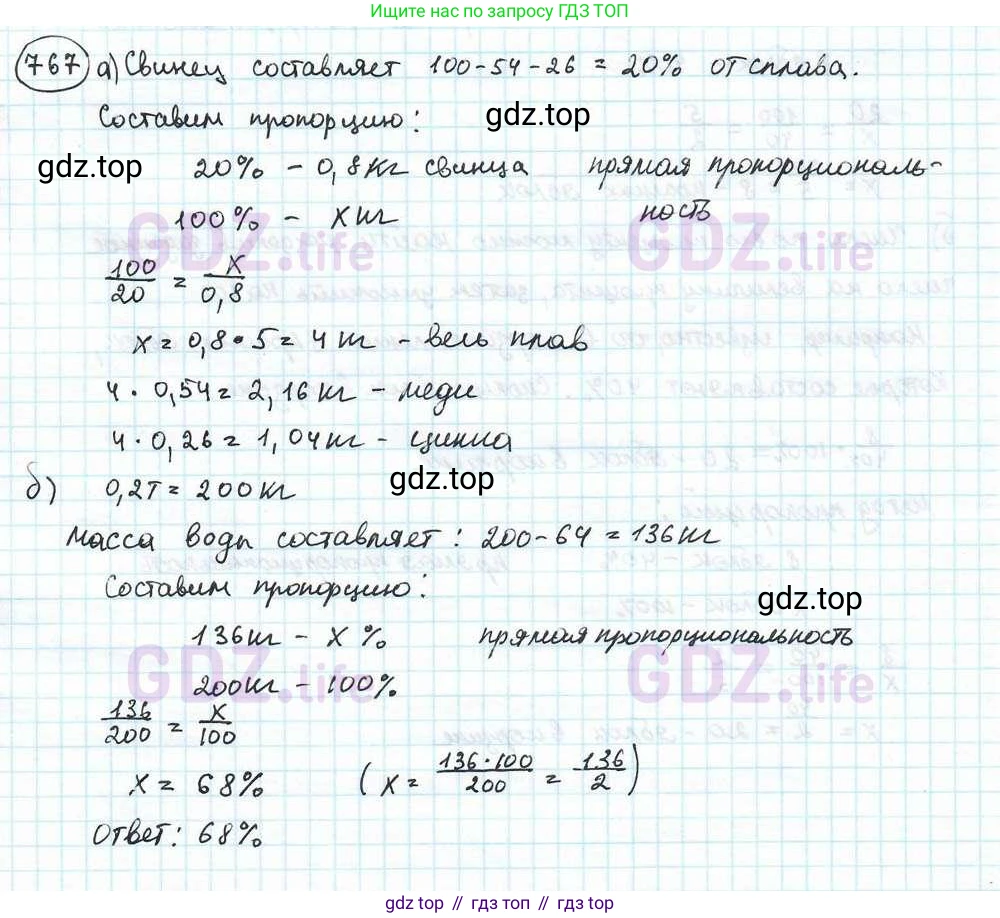 Ищите нас по запросу ГДЗ ТОП
767 а) Свинец составляет 100-54-26 = 20% от сплава.
Составим пропорцию:
gdz.top
gdz.top
20% - 0,8кг свинца прямая пропорциональ-
100% - x кг ность
GDZ.life GDZ.life
100/20 = x/0,8
x = 0,8 • 5 = 4 кг - весь плав
4 • 0,54 = 2,16 кг - меди
4 • 0,26 = 1,04 кг - цинка
gdz.top
б) 0,2т = 200 кг
Масса воды составляет: 200-64 = 136 кг
Составим пропорцию:
gdz.top
136 кг - x % прямая пропорциональность
GDZ.life GDZ.life
200 кг - 100%
136/200 = x/100
x = 68% (x = 136•100/200 = 136/2)
Ответ: 68%
gdz.top // гдз топ // gdz.top // гдз топ